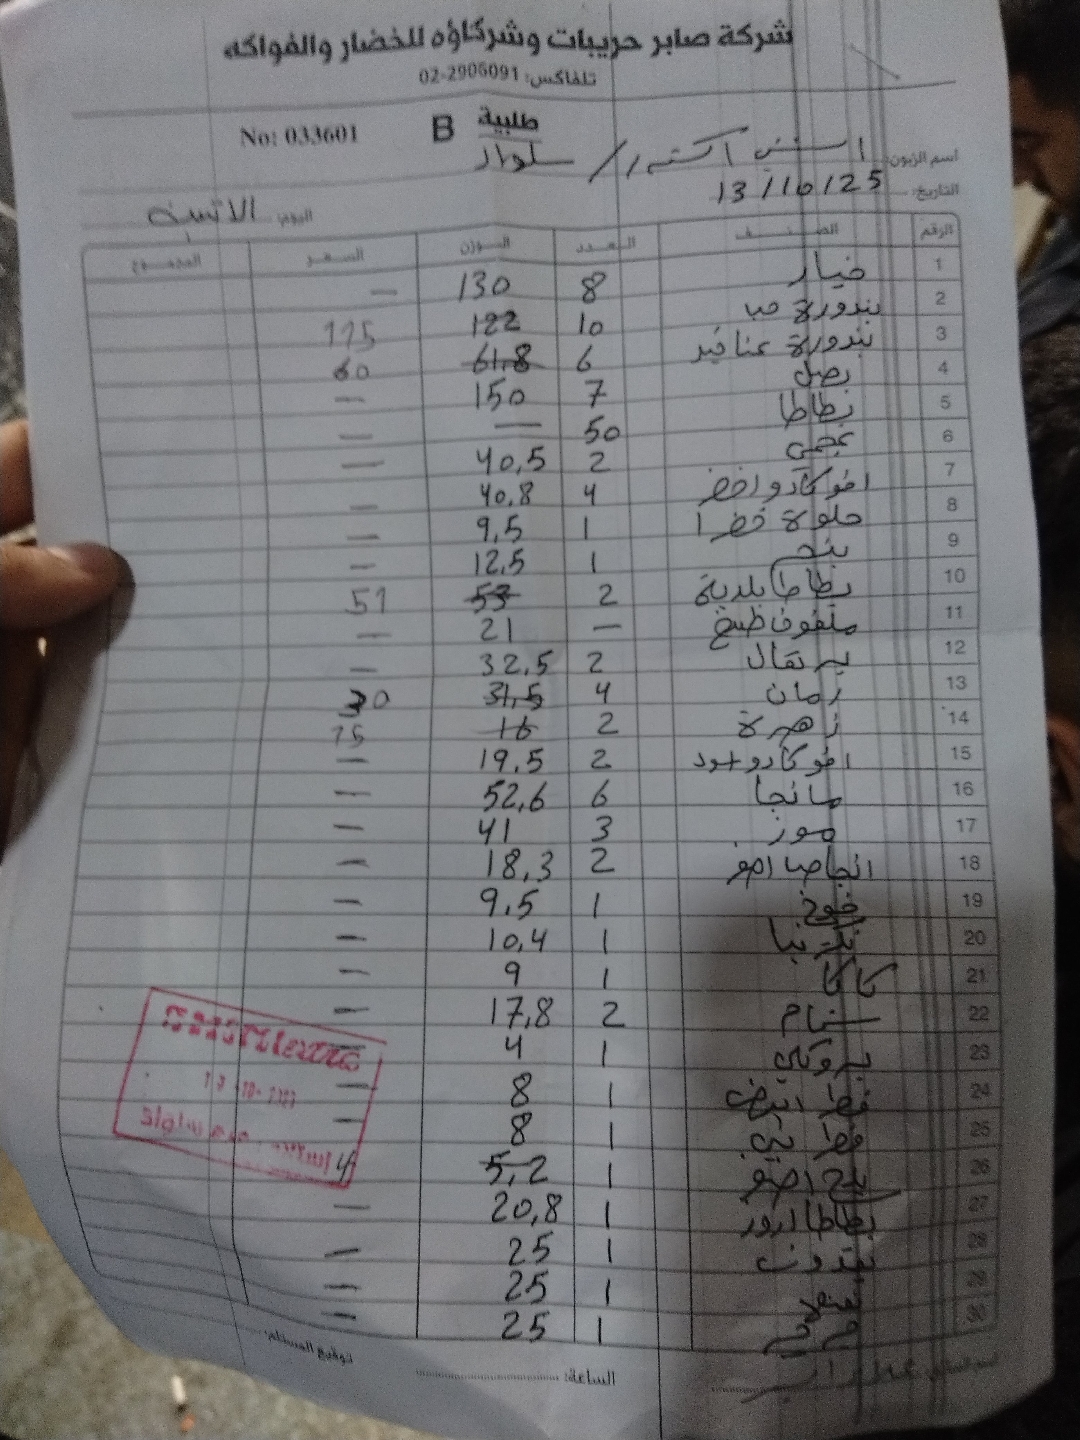 شركة صابر حريبات وشركاؤه للخضار والفواكه
تلفاكس: 02-2906091
طلبية B No: 033601
اسم الزبون:
سلواد
التاريخ: 13/10/25
اليوم: الاثنين
الرقم الصنف العدد الوزن السعر المجموع
1 خيار 8 130 —
2 بندورة حب 10 122 115
3 بندورة عناقيد 6 61,8 60
4 بصل 7 150 —
5 بطاطا 50 — —
6 2 40,5 —
7 افوكادو اخضر 4 40,8 —
8 حلوة خضرا 1 9,5 —
9 1 12,5 —
10 بطاطا بلدية 2 53 51
11 ملفوف طبيخ — 21 —
12 برتقال 2 32,5 —
13 رمان 4 31,5 30
14 زهرة 2 16 15
15 افوكادو اسود 2 19,5 —
16 مانجا 6 52,6 —
17 موز 3 41 —
18 انجاص اصفر 2 18,3 —
19 خوخ 1 9,5 —
20 1 10,4 —
21 كاكا 1 9 —
22 2 17,8 —
23 بروكلي 1 4 —
24 فطر ابيض 1 8 —
25 فطر بني 1 8 —
26 بلح اصفر 1 5,2 4
27 1 20,8 —
28 بقدونس 1 25 —
29 1 25 —
30 1 25 —
الساعة:
توقيع المستلم: